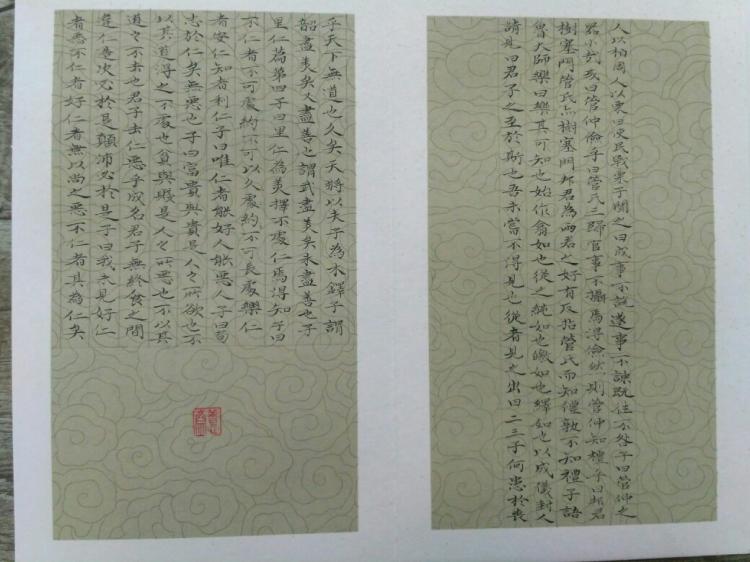 人以柏周人以栗曰使民戰栗子聞之曰成事不說遂事不諫既往不咎子曰管仲之
器小哉或曰管仲儉乎曰管氏三歸官事不攝焉得儉然則管仲知禮乎曰邦君
樹塞門管氏亦樹塞門邦君為兩君之好有反坫管氏而知禮孰不知禮子語
魯大師樂曰樂其可知也始作翕如也從之純如也皦如也繹如也以成儀封人
請見曰君子之至於斯也吾未嘗不得見也從者見之出曰二三子何患於喪
乎天下無道也久矣天將以夫子為木鐸子謂
韶盡美矣又盡善也謂武盡美矣未盡善也子
里仁為第四子曰里仁為美擇不處仁焉得知子曰
不仁者不可處約不可以久處約不可長處樂仁
者安仁知者利仁子曰唯仁者能好人能惡人子曰苟
志於仁矣無惡也子曰富貴與貴是人之所欲也不
以其道得之不處也貧與賤是人之所惡也不以其
道之不去也君子去仁惡乎成名君子無終食之間
違仁造次必於是顛沛必於是子曰我未見好仁
者惡不仁者好仁者無以尚之惡不仁者其為仁矣